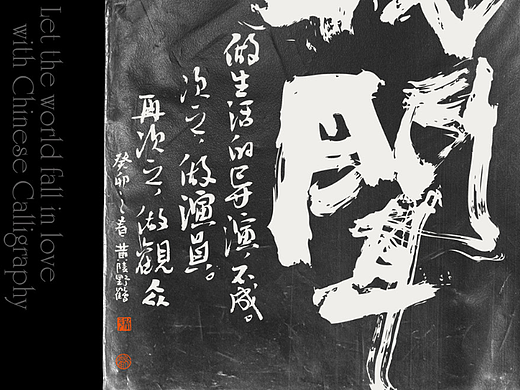 做生活的导演，不成。
次之，做演員。
再次之，做觀众
癸卯之春 黄陵野鹤
Let the world fall in love
with Chinese Calligraphy